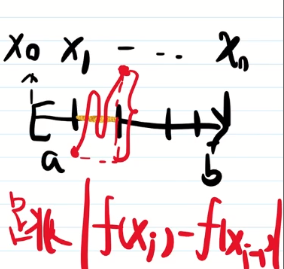 x₀ x₁ - ‥ xₙ
a b
|f(xᵢ)-f(xᵢ₋₁)|